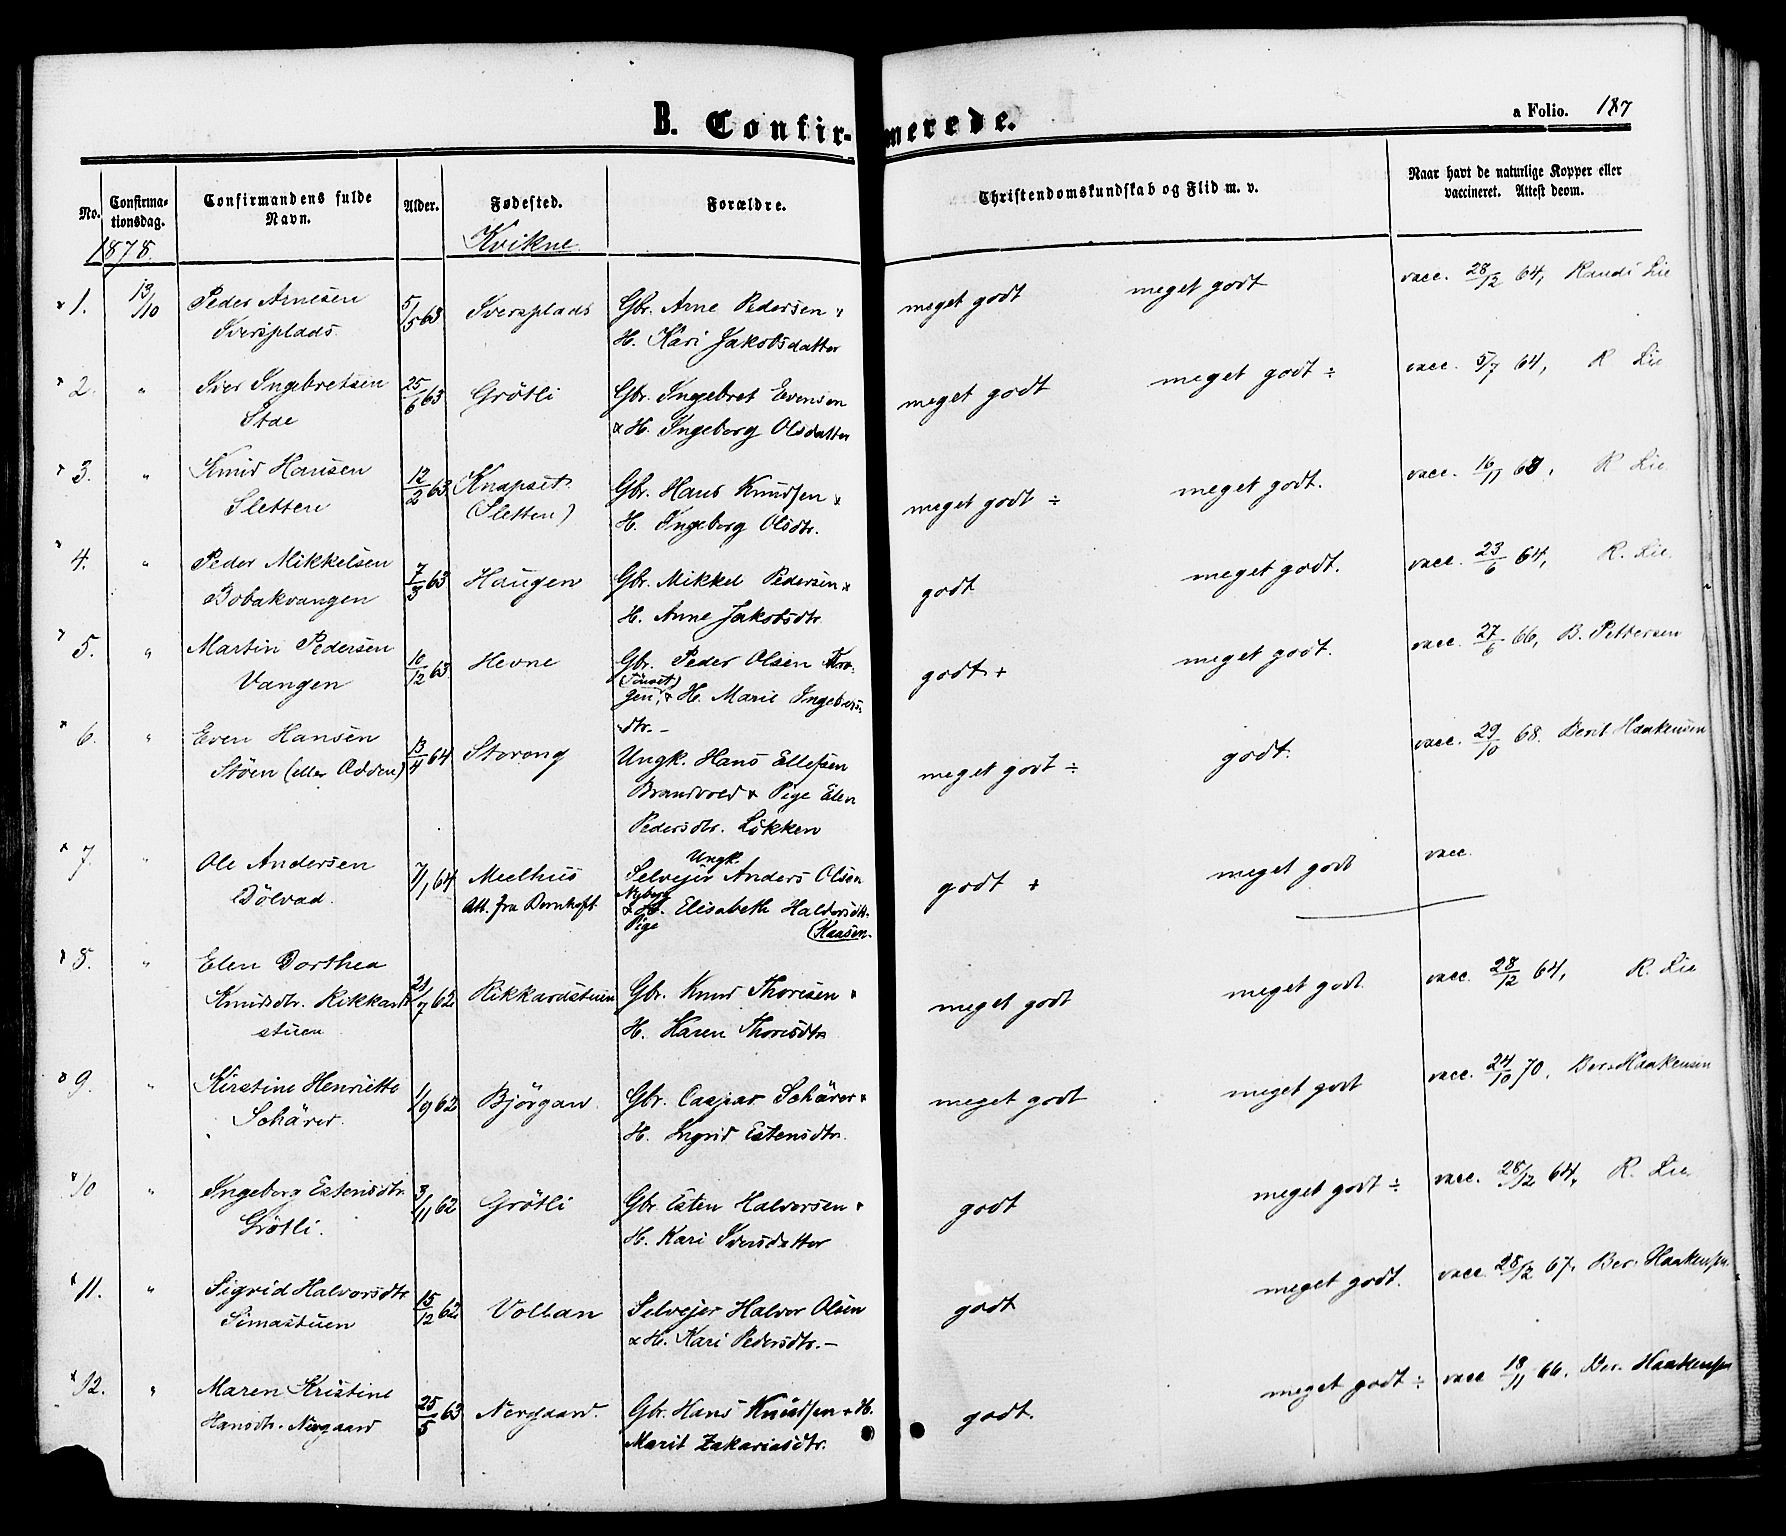 B. Confir-merede.
a Folio. 187
No. Confirmationsdag. Confirmandens fulde Navn. Alder. Fødested. Forældre. Christendomskundskab og Flid m. v. Naar havt de naturlige Kopper eller vaccineret. Attest derom.
1878. Kvikne
1. 13/10 Peder Arnesen 5/5 63 Iversplads Gbr. Arne Pedersen & meget godt meget godt vacc. 28/12 64, Randi Lie
Iversplads. H. Kari Jakobsdatter
2. " Iver Ingebretsen 25/6 63 Grötli Gbr. Ingebret Evensen meget godt meget godt ÷ vacc. 5/7 64, R Lie
Stae & H. Ingeborg Olsdatter
3. " Knud Hansen 12/2 63 Knapset Gbr. Hans Knudsen & meget godt ÷ meget godt. vacc. 16/11 68, R Lie
Sletten (Sletten) H. Ingeborg Olsdtr.
4. " Peder Mikkelsen 7/3 63 Haugen Gbr. Mikkel Pedersen & godt meget godt. vacc. 23/6 64, R. Lie.
Bobakvangen H. Anne Jakobsdtr.
5. " Martin Pedersen 10/12 63. Hevne Gbr. Peder Olsen Tro- godt + meget godt. vacc. 27/6 66, B. Pettersen
Vangen (Tönset) gen, & H. Marie Ingebrs-
dtr.-
6. " Even Hansen 13/4 64 Storeng Ungk. Hans Ellefsen meget godt ÷ godt. vacc. 29/10 68. Berit Haakensen
Stöen (eller Odden) Brandvold & Pige Elen
Pedersdtr. Lökken
7. " Ole Andersen 7/1 64 Meelhus Ungk. Selvejer Anders Olsen godt + meget godt vacc.
Dölvad. Att. fra Bernhoft Nyberg & H. Elisabeth Halvorsdtr.
Pige (Kaasen.
8. " Elen Dorthea
Knudsdtr. Rikkard- 23/7 62 Rikkardstuen Gbr. Knud Thoresen & meget godt meget godt vacc. 28/12 64, R. Lie
stuen H. Karen Thoresdtr
9. " Kirstine Henriette 1/9 62 Björgan Gbr. Caspar Schärer & meget godt meget godt vacc. 24/10 70, Ber. Haakensen
Schärer. H. Ingrid Estensdtr.
10 " Ingeborg Estensdtr. 3/11 62 Grötli Gbr. Esten Halvorsen & godt meget godt ÷ vacc. 28/12 64, R. Lie
Grötli. H. Kari Iversdatter
11. " Sigrid Halvorsdtr 15/12 62 Vollan Selvejer Halvor Olsen godt meget godt. vacc. 28/12 67, Ber. Haakensen
Simastuen & H. Kari Pedersdtr.-
12. " Maren Kristine 25/5 63 Nergaard. Gbr. Hans Knudsen & H. godt. meget godt ÷ vacc 18/11 66. Ber. Haakensen
Hansdtr. Nergaard Marit Zakariasdtr.